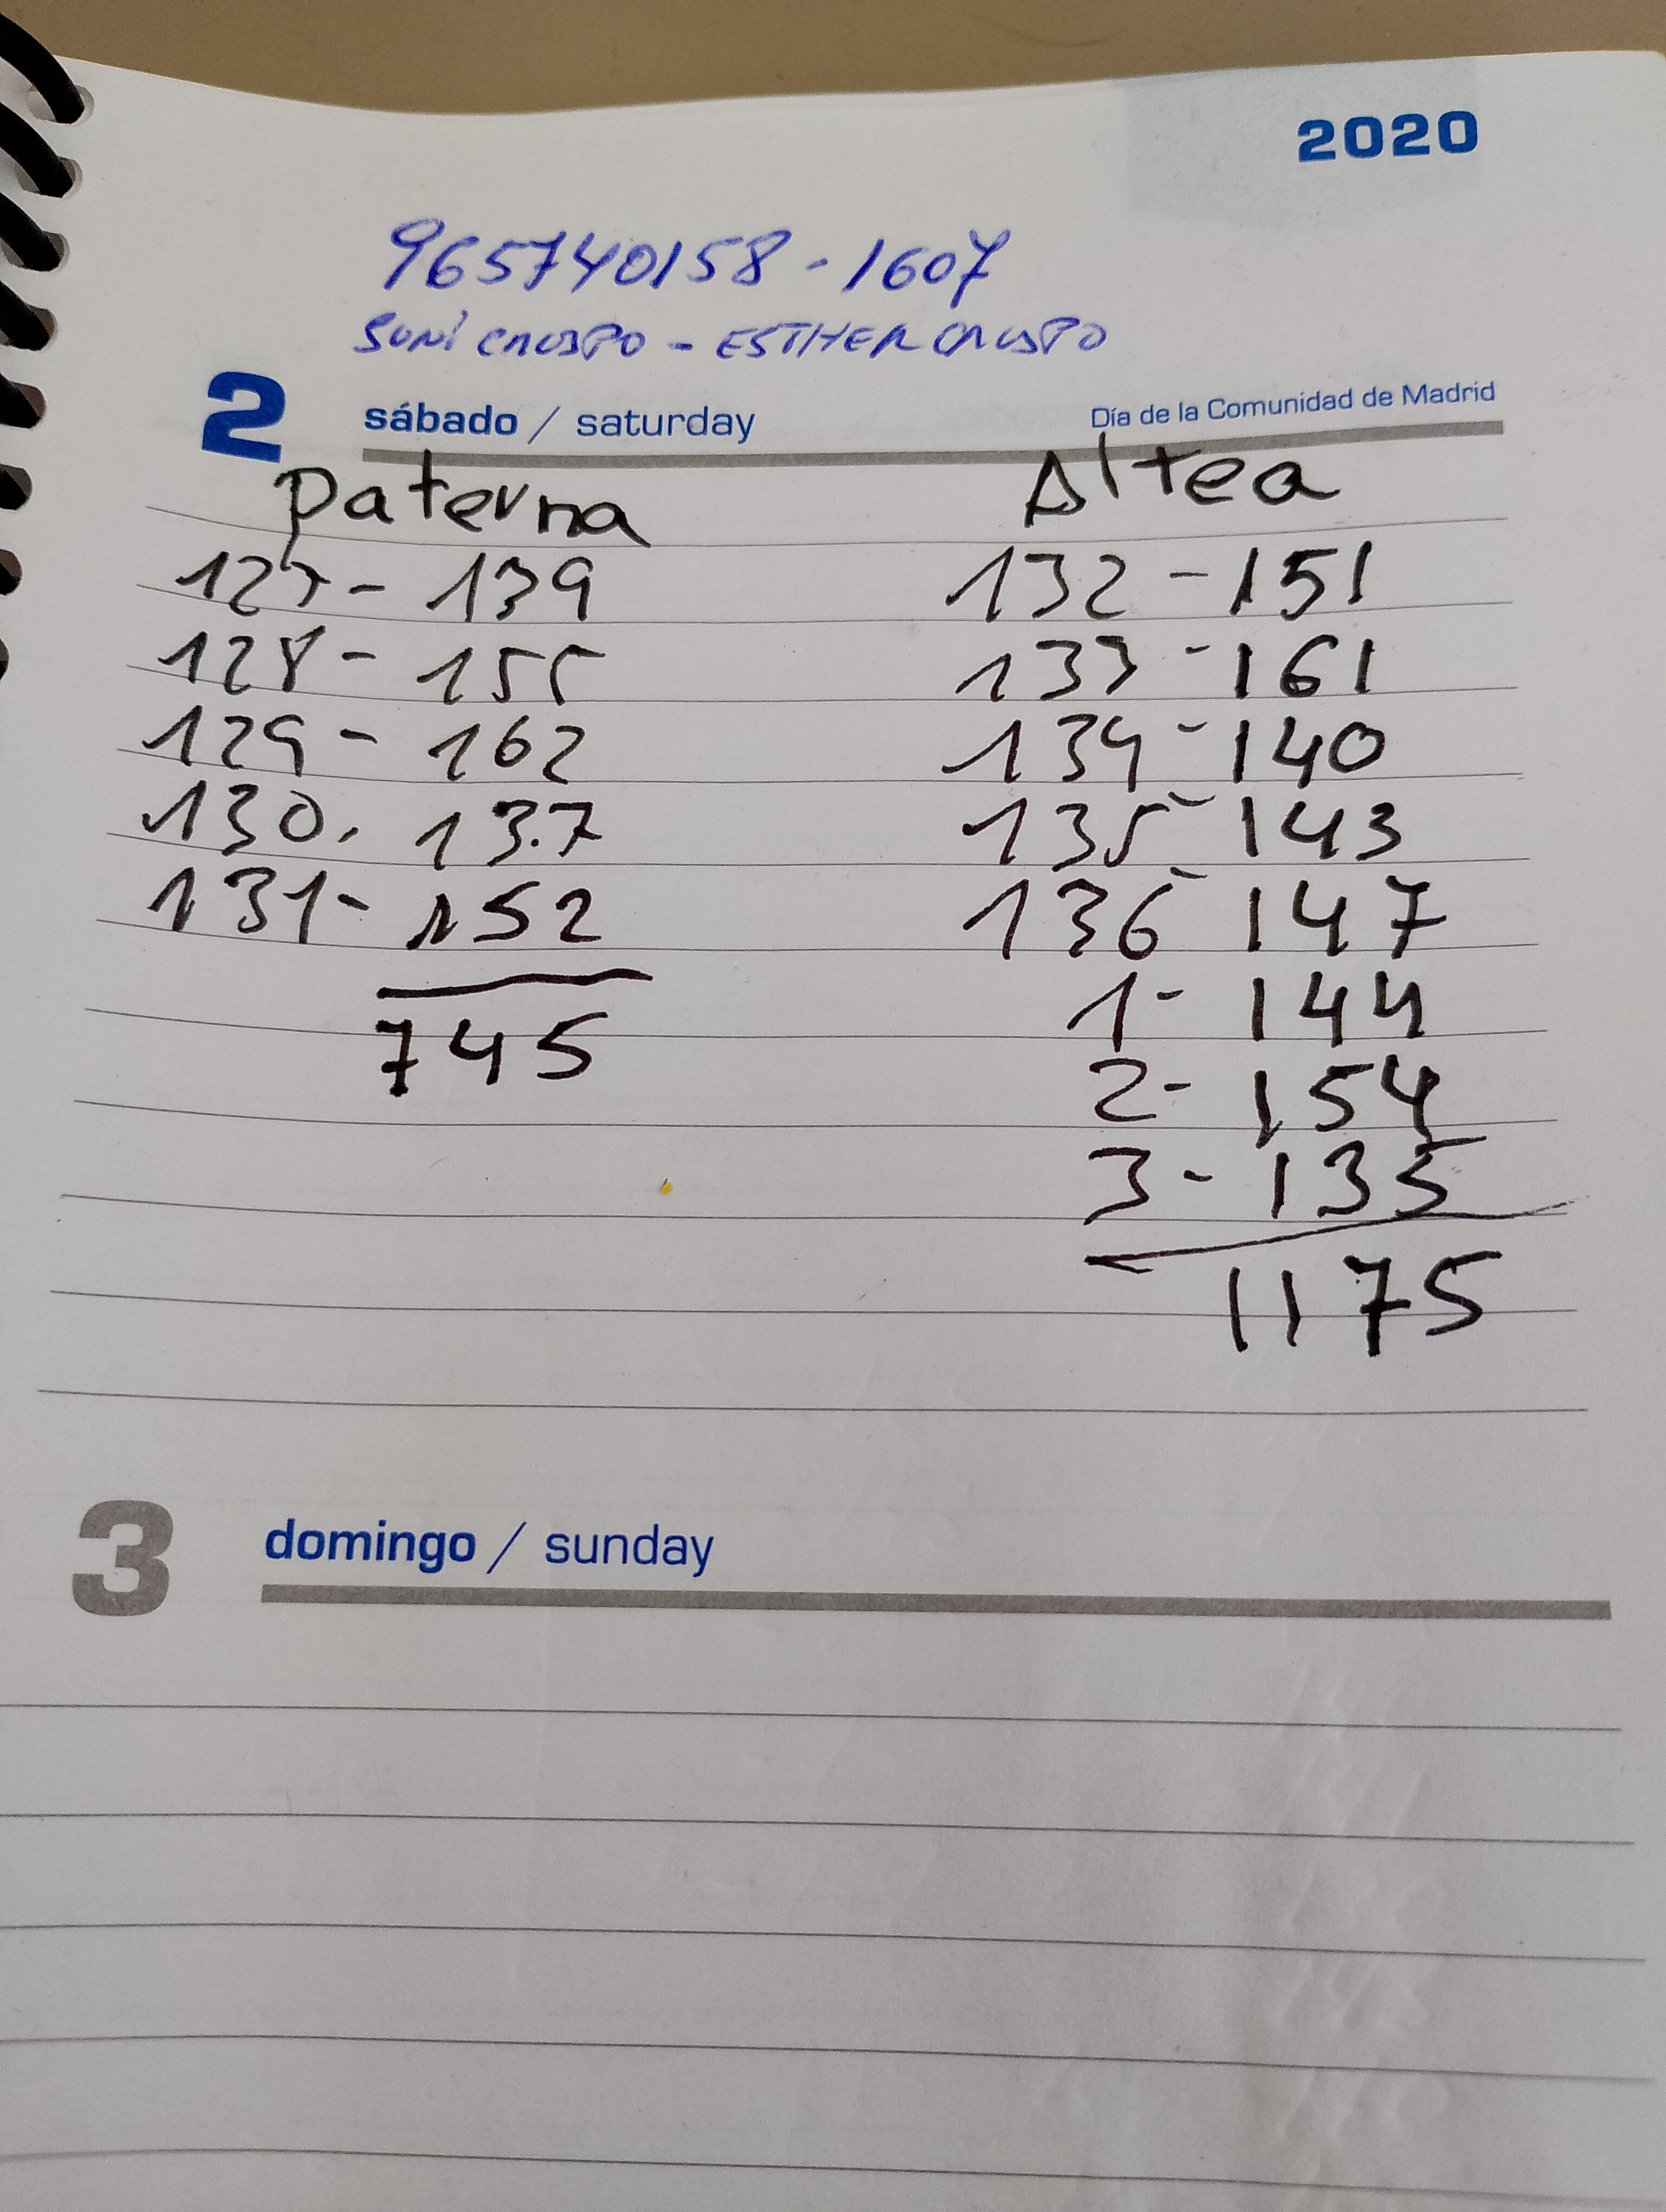 2020
965740158 - 1607
SUNI CRESPO - ESTHER CRESPO
2 sábado / saturday Día de la Comunidad de Madrid
Paterna
127 - 139
128 - 155
129 - 162
130. 13.7
131 - 152
745
Altea
132 - 151
133 - 161
134 - 140
135 - 143
136 - 147
1 - 144
2 - 154
3 - 135
1175
3 domingo / sunday